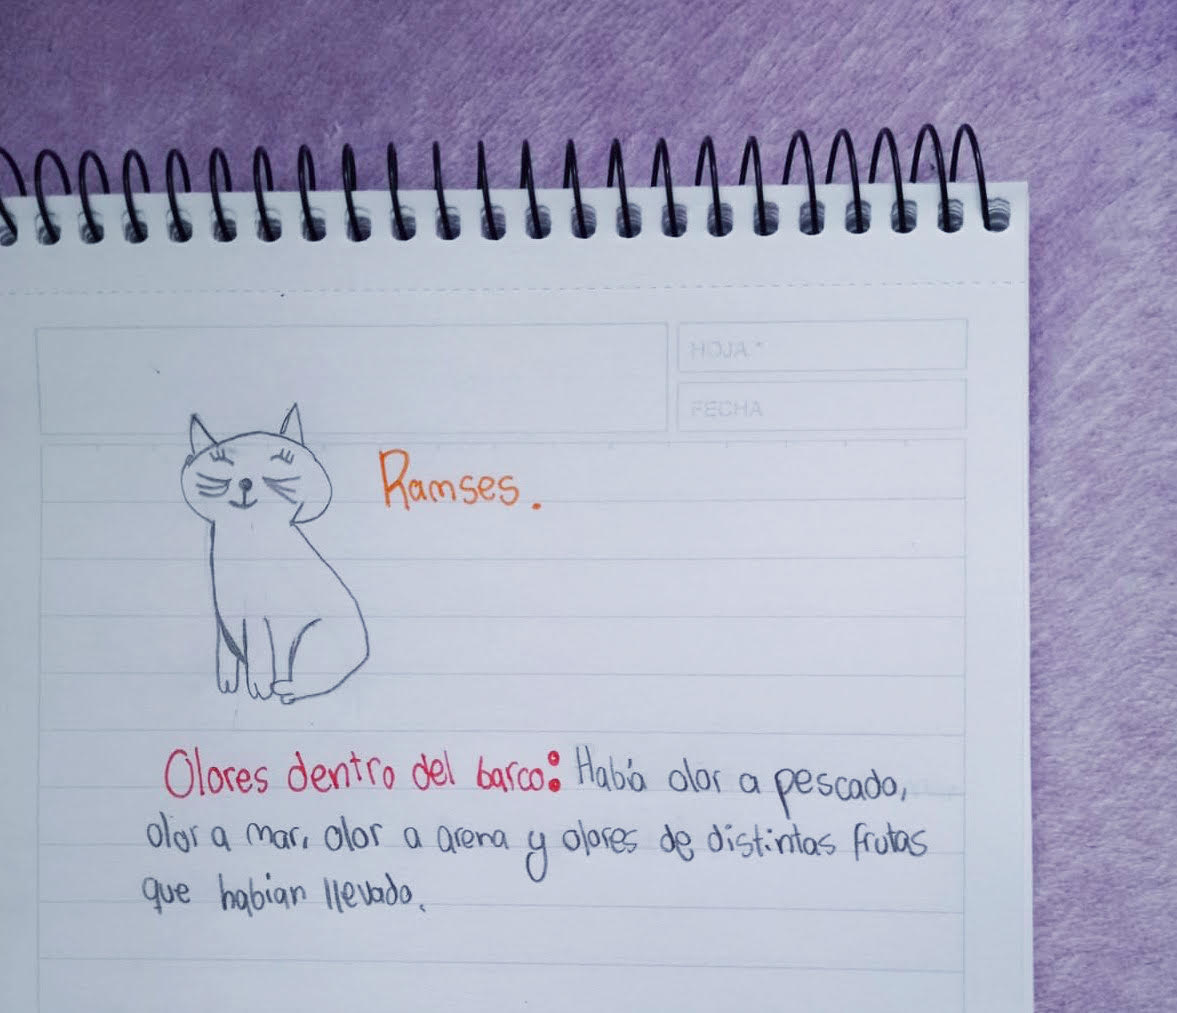 HOJA *
FECHA
Ramses.
Olores dentro del barco: Había olor a pescado,
olor a mar, olor a arena y olores de distintas frutas
que habian llevado.